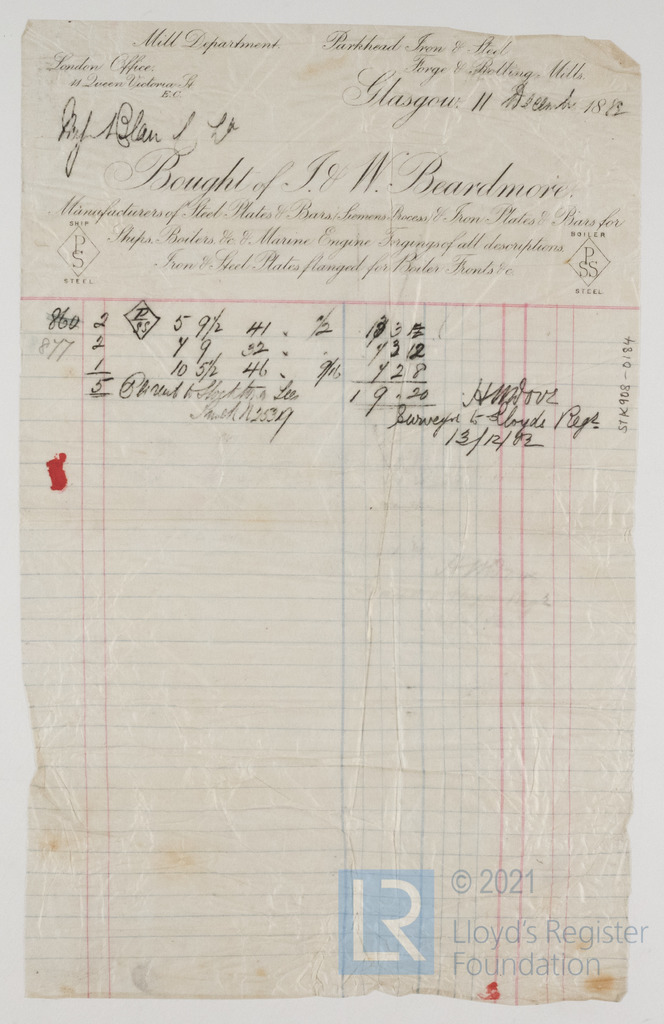 Mill Department.
Parkhead Iron & Steel
Forge & Rolling Mills.
London Office,
41 Queen Victoria St
E.C.
Glasgow, 11 Decemb 1882
Bought of I. & W. Beardmore,
Manufacturers of Steel Plates & Bars, (Siemens Process) & Iron Plates & Bars for
Ships, Boilers, &c. & Marine Engine Forgings of all descriptions.
Iron & Steel Plates flanged for Boiler Fronts &c.
SHIP
P
S
STEEL
BOILER
P
SS
STEEL
860 2 P SS 5 9½ 41 " ½
877 2 4 9 32 "
1 10 5½ 46 " 9/16 4 2 8
5 1 9 . 20
Surveyor to Lloyds Regr
13/12/82
STK908-0184
© 2021
LR
Lloyd's Register
Foundation